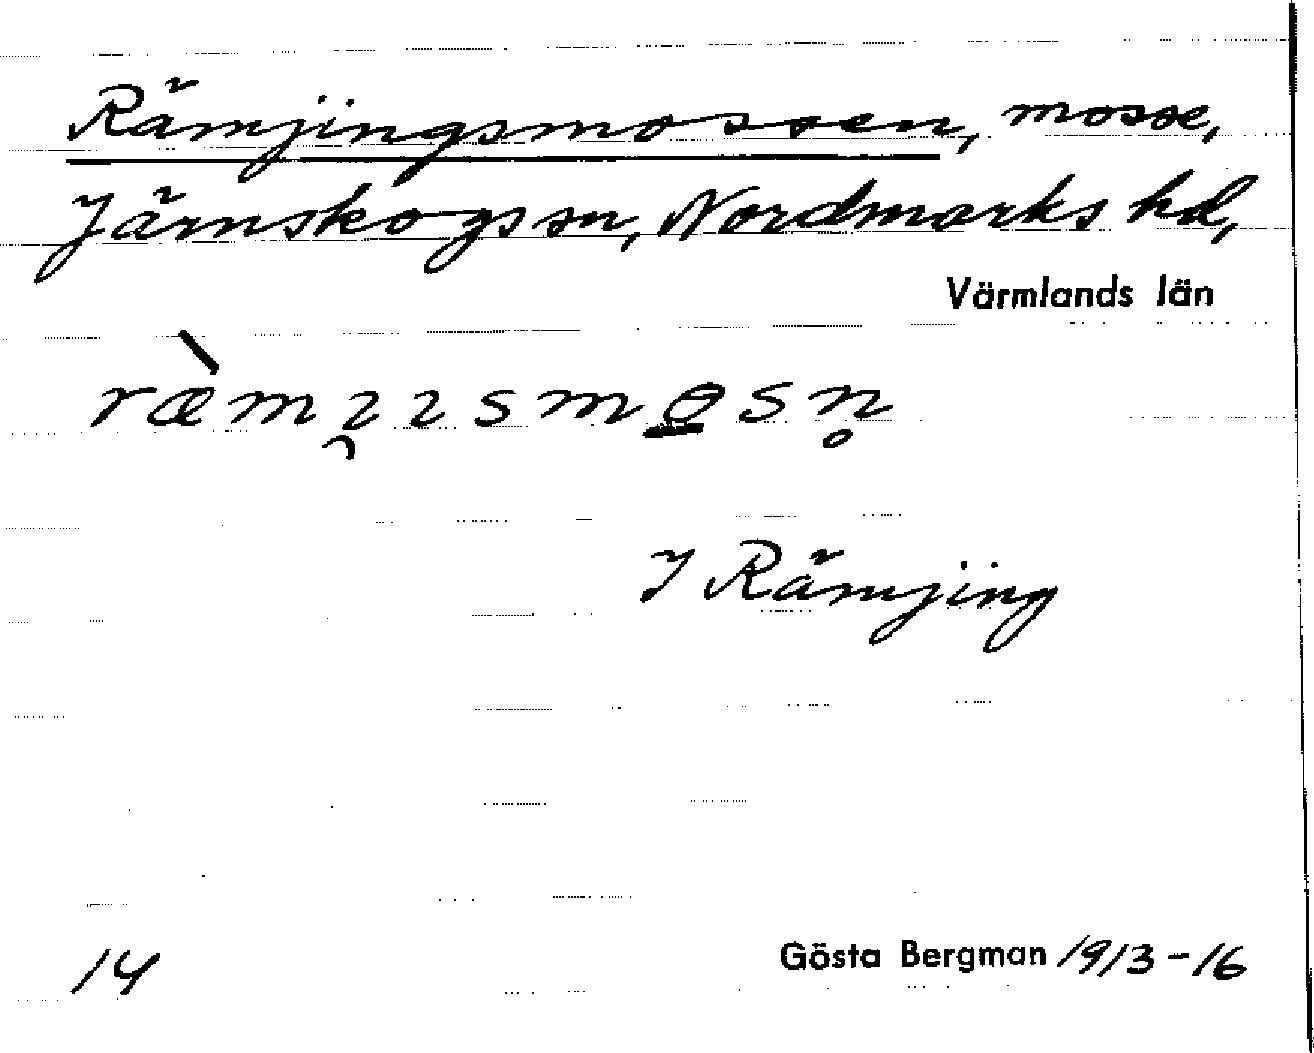 Rämjingsmossen, mosse,
Järnskogs sn, Nordmarks hd,
Värmlands län
I Rämjing
14
Gösta Bergman 1913-16